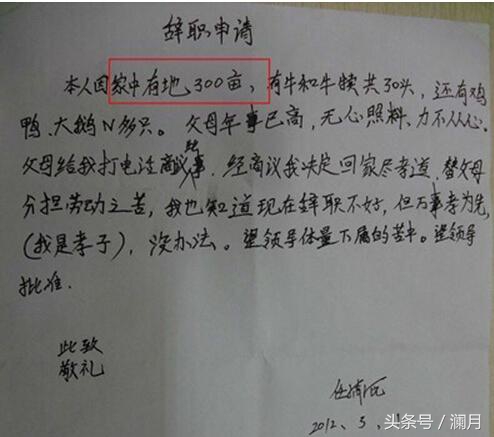 辞职申请
本人因家中有地300亩，有牛和牛犊共30头，还有鸡
鸭、大鹅N多只。父母年事已高，无心照料、力不从心。
父母给我打电话商议此事，经商议我决定回家尽孝道，替父母
分担劳动之苦，我也知道现在辞职不好，但万事孝为先，
(我是孝子)，没办法。望领导体量下属的苦中。望领导
批准.
此致
敬礼
2012、3、
头条号/澜月